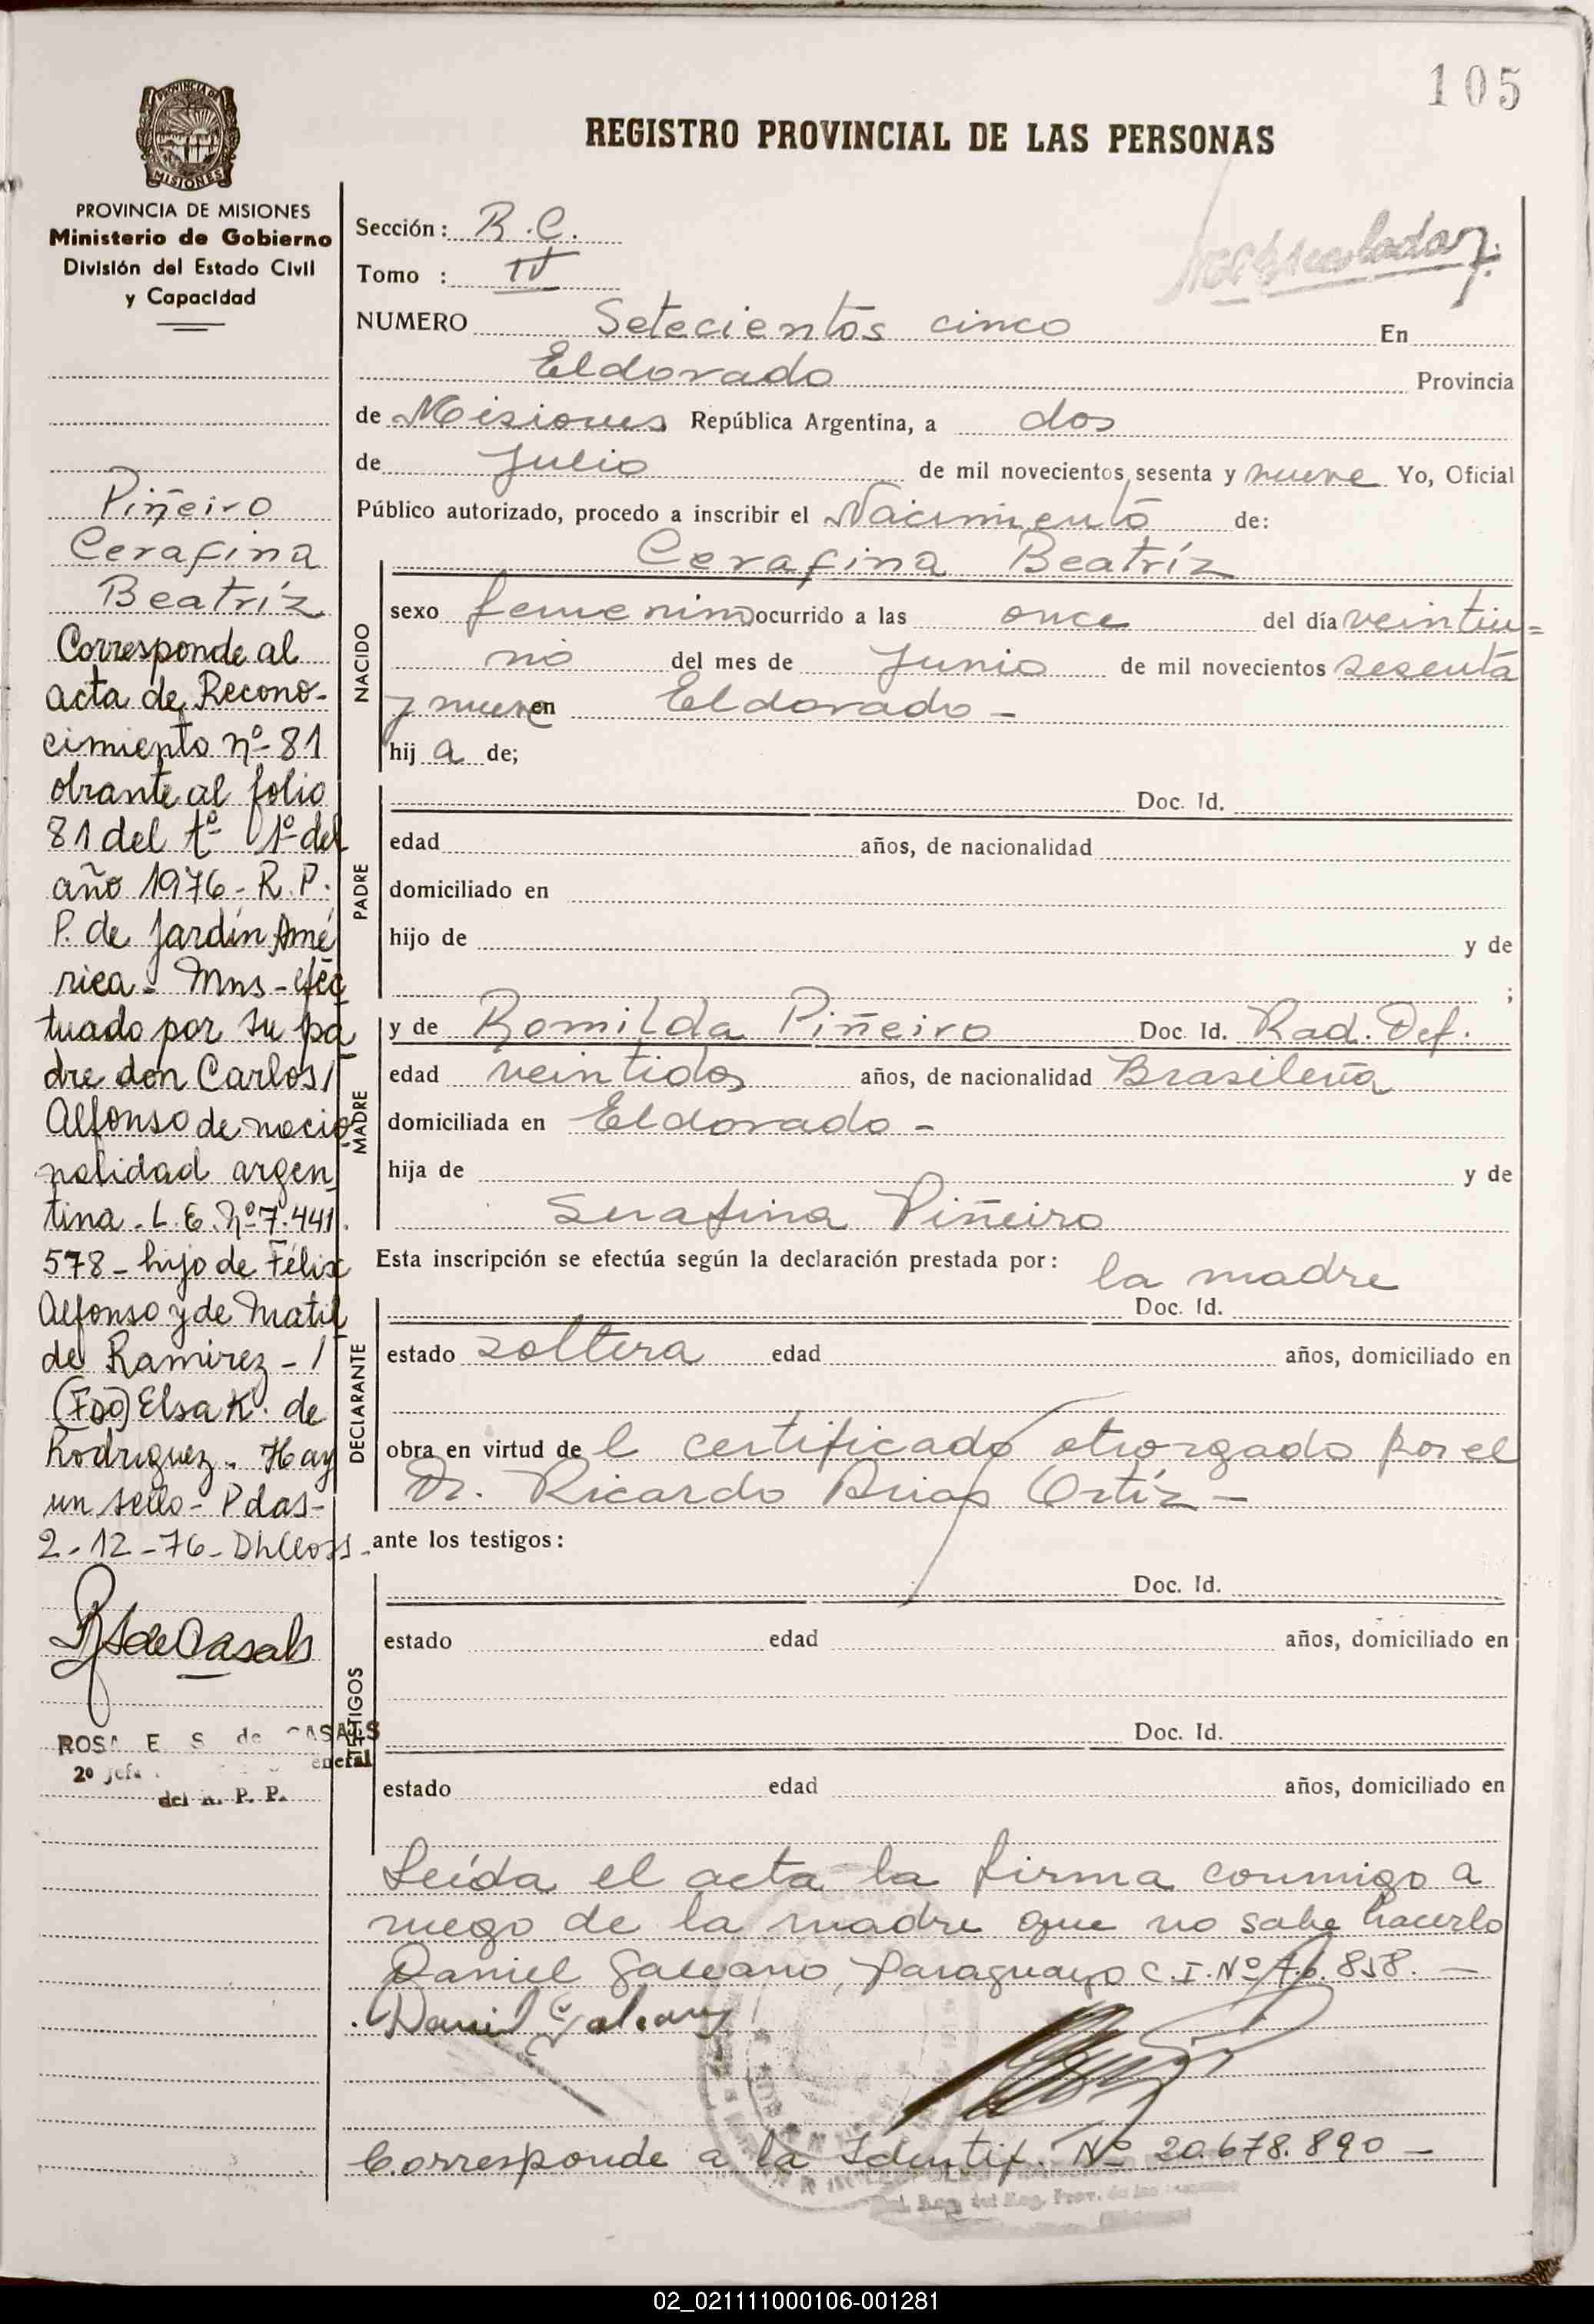 105
REGISTRO PROVINCIAL DE LAS PERSONAS
PROVINCIA DE
MISIONES
PROVINCIA DE MISIONES
Ministerio de Gobierno
División del Estado Civil
y Capacidad
Piñeiro
Cerafina
Beatríz
Corresponde al
acta de Recono-
cimiento nº 81
obrante al folio
81 del tº 1º del
año 1976 - R. P.
P. de Jardín Amé
rica - Mns - efec
tuado por su pa
dre don Carlos
Alfonso de nacio
nalidad argen
tina - L. E. Nº 7.441.
578 - hijo de Félix
Alfonso y de Matil
de Ramirez -
(Fdo) Elsa K. de
Rodriguez - Hay
un sello - Pdas -
2-12-76 -
R S de Casals
ROSA E S de CASALS
2º Jefe eneral
del R. P. P.
Sección: R.C.
Tomo : IV
NUMERO Setecientos cinco En
Eldorado Provincia
de Misiones República Argentina, a dos
de Julio de mil novecientos sesenta y nueve Yo, Oficial
Público autorizado, procedo a inscribir el Nacimiento de:
Cerafina Beatríz
NACIDO
sexo femenino ocurrido a las once del día veintiu=
no del mes de Junio de mil novecientos sesenta
y nueve en Eldorado -
hij a de;
PADRE
Doc. Id.
edad años, de nacionalidad
domiciliado en
hijo de y de
;
MADRE
y de Romilda Piñeiro Doc. Id. Rad. Def.
edad veintidos años, de nacionalidad Brasileña
domiciliada en Eldorado -
hija de y de
Serafina Piñeiro
Esta inscripción se efectúa según la declaración prestada por: la madre
DECLARANTE
Doc. Id.
estado soltera edad años, domiciliado en
obra en virtud de l certificado otrorgado por el
Dr. Ricardo Arias Ortíz -
ante los testigos:
TESTIGOS
Doc. Id.
estado edad años, domiciliado en
Doc. Id.
estado edad años, domiciliado en
Leída el acta la firma conmigo a
ruego de la madre que no sabe hacerlo
Daniel Galeano, Paraguayo C.I. Nº 76.858. -
Daniel Galeano
Corresponde a la Identif. Nº 20.678.890 -
del Reg. Prov. de las
02_021111000106-001281